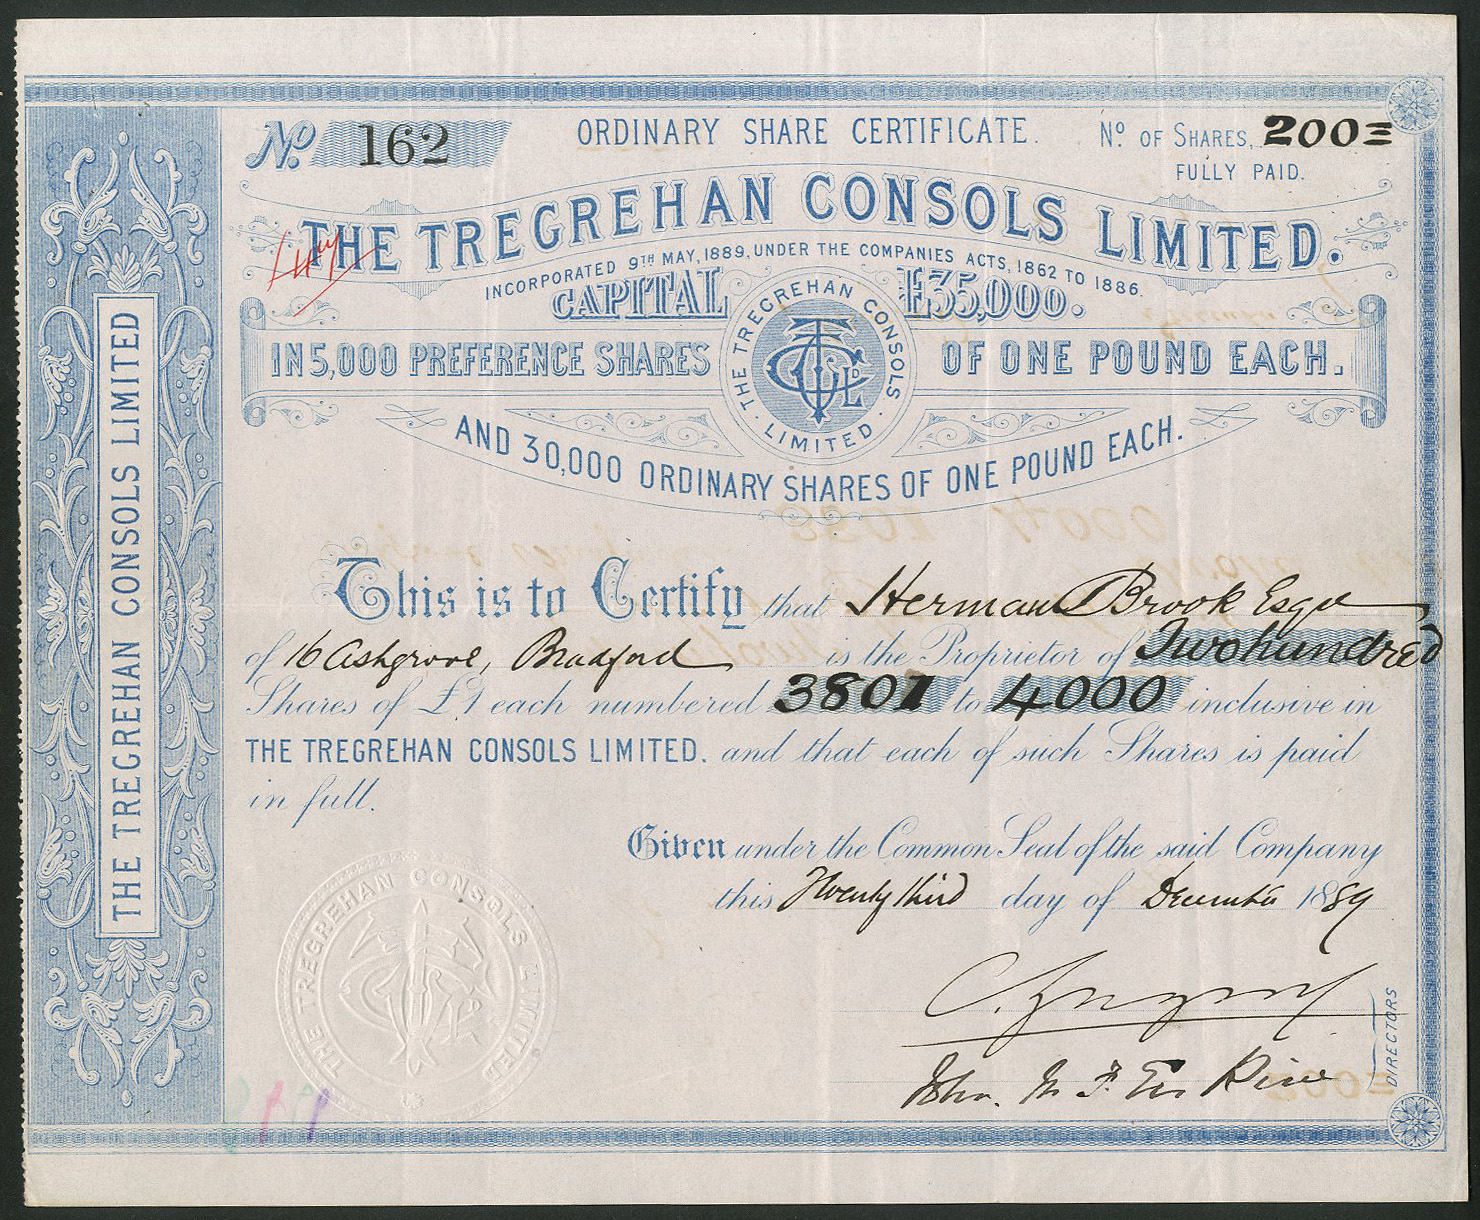 No. 162
ORDINARY SHARE CERTIFICATE.
No. OF SHARES, 200=
FULLY PAID.
THE TREGREHAN CONSOLS LIMITED.
INCORPORATED 9TH MAY, 1889, UNDER THE COMPANIES ACTS, 1862 TO 1886.
CAPITAL £35,000.
IN 5,000 PREFERENCE SHARES OF ONE POUND EACH.
THE TREGREHAN CONSOLS LIMITED
AND 30,000 ORDINARY SHARES OF ONE POUND EACH.
This is to Certify that Herman Brook Esqre
of 16 Ashgrove, Bradford is the Proprietor of Two hundred
Shares of £1 each numbered 3801 to 4000 inclusive in
THE TREGREHAN CONSOLS LIMITED. and that each of such Shares is paid
in full.
Given under the Common Seal of the said Company
this Twenty third day of December 1889
DIRECTORS
THE TREGREHAN CONSOLS LIMITED
THE TREGREHAN CONSOLS LIMITED